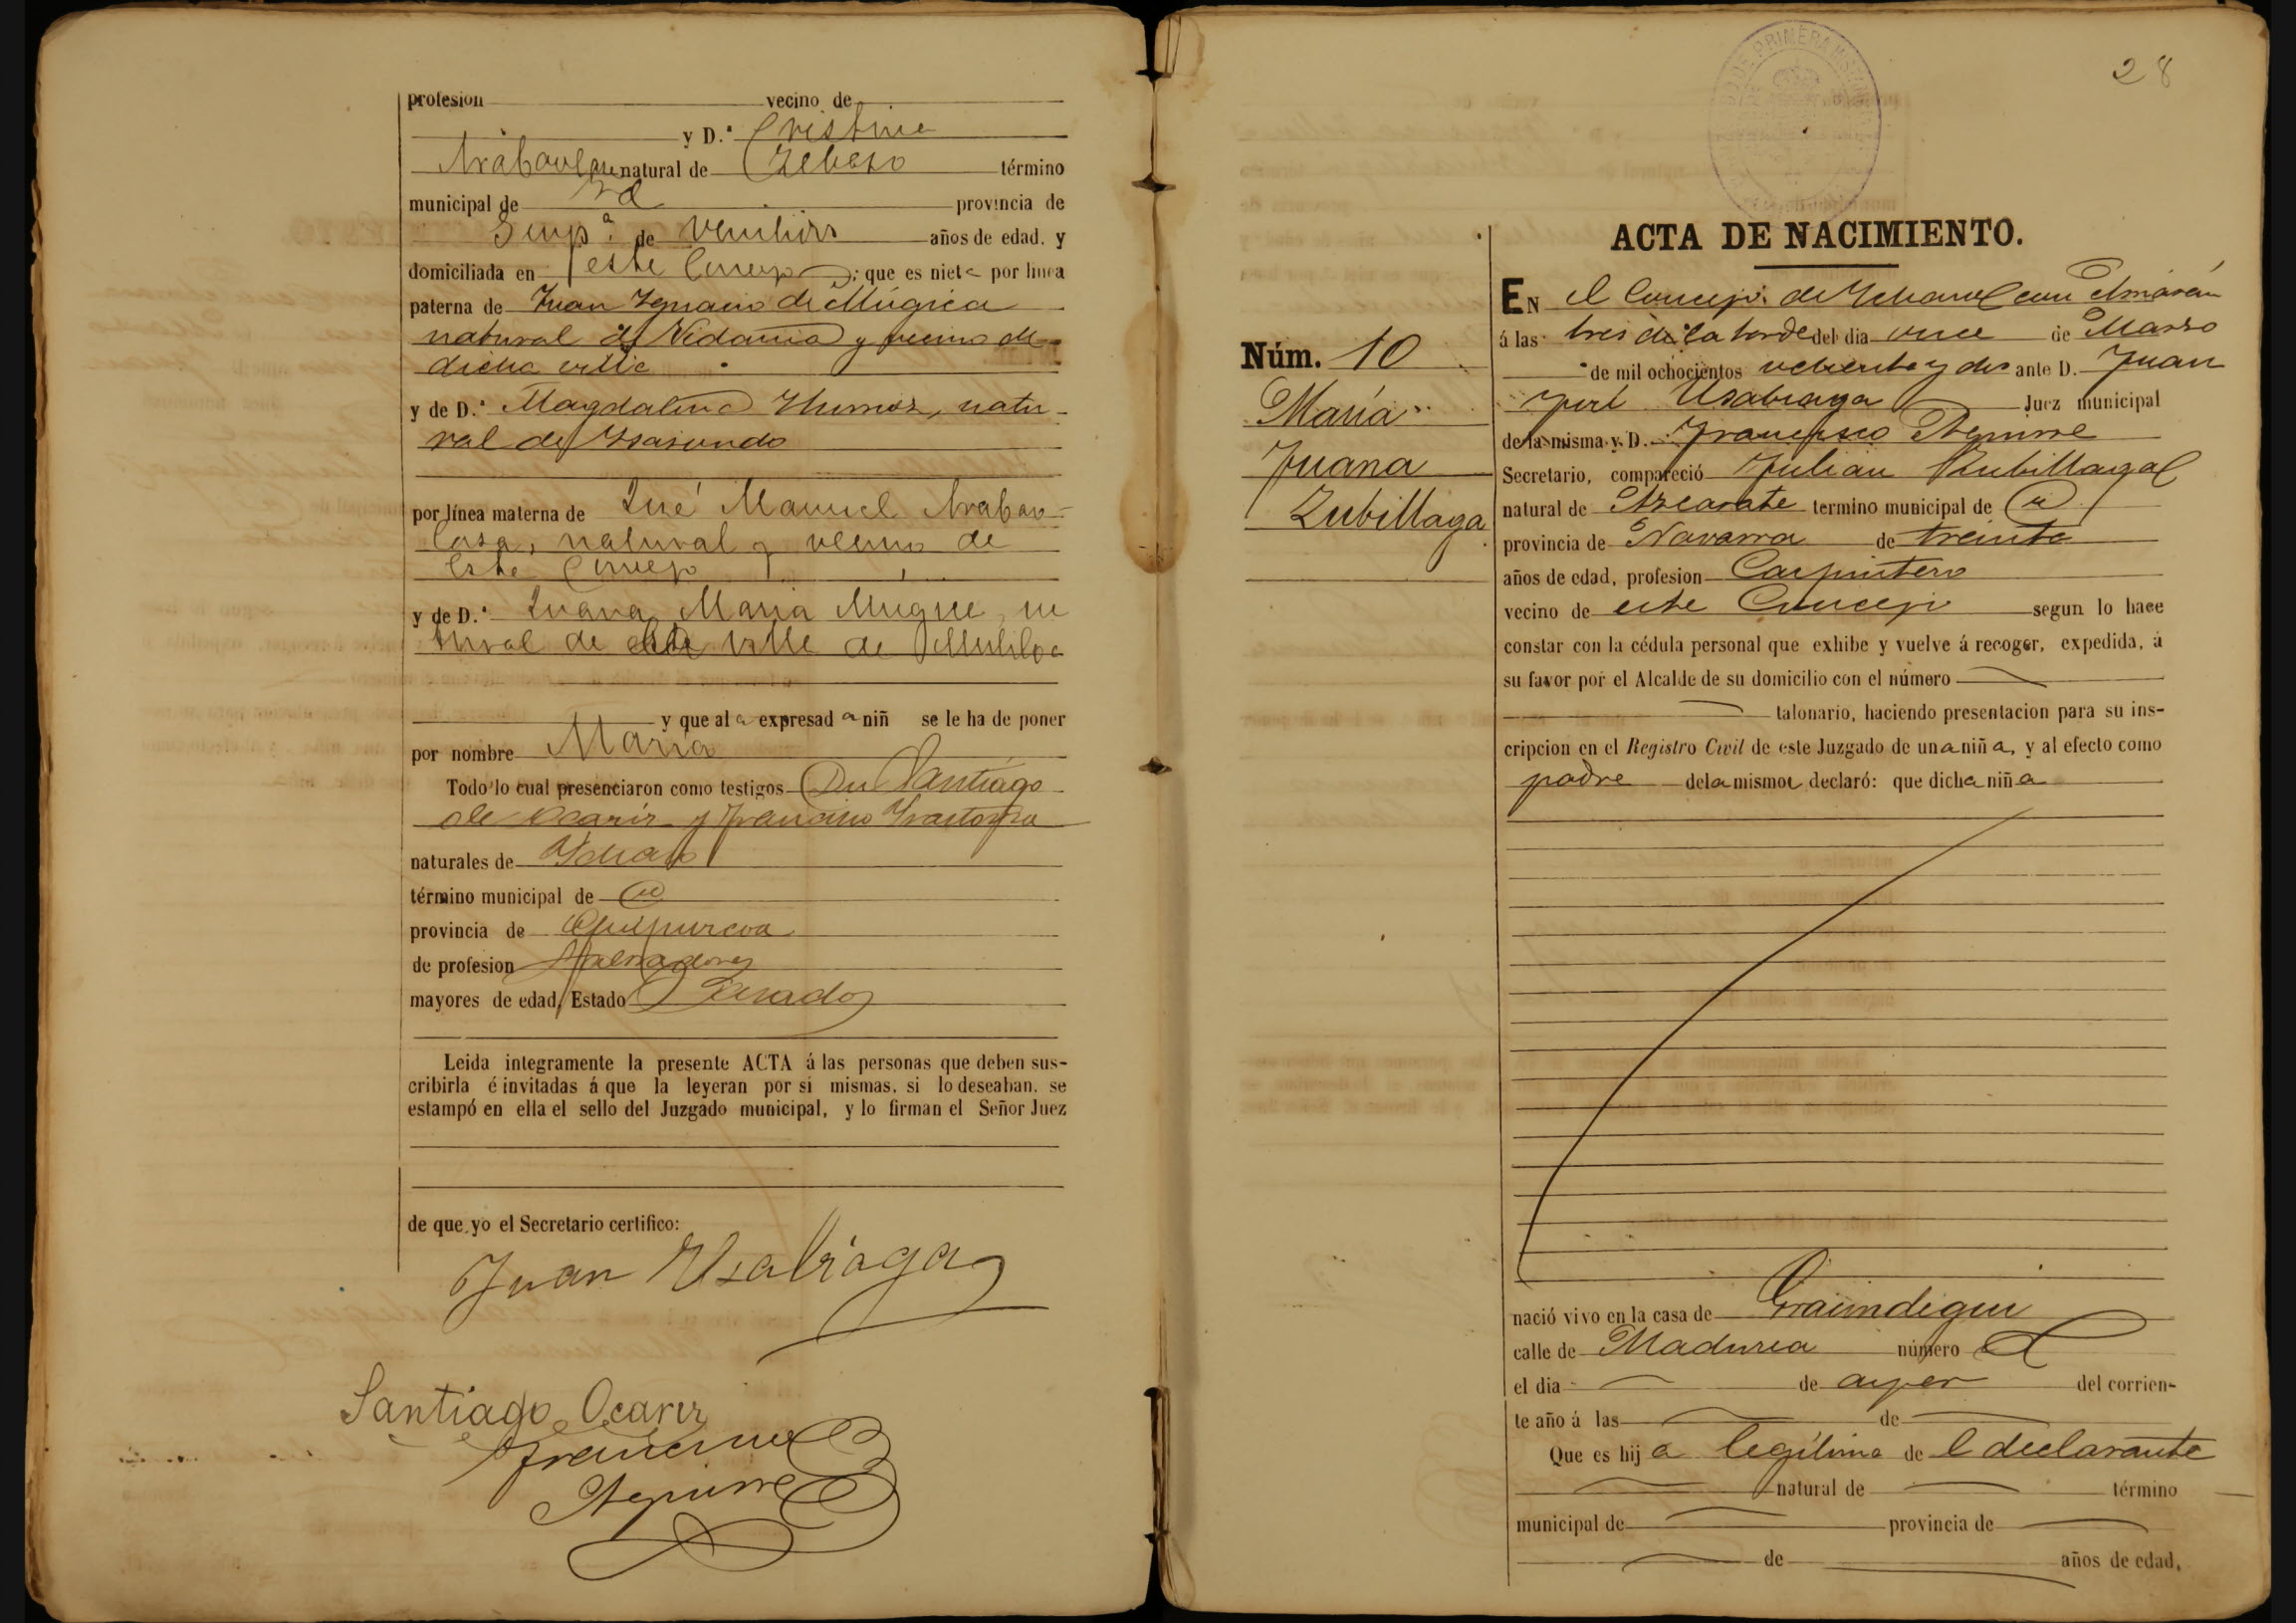 profesion vecino de
y D.ª Cristina
natural de término
municipal de id provincia de
Guip.ª de años de edad, y
domiciliada en este Concejo; que es nieta por linea
paterna de Juan Ignacio de Múgica
natural de Vidania y vecino de
dicha villa
y de D.ª Magdalena natu-
ral de Ysasondo
por línea materna de José Manuel
natural y vecino de
este Concejo
y de D.ª Juana Maria na
tural de villa de
y que al a expresad a niñ se le ha de poner
por nombre Maria
Todo lo cual presenciaron como testigos Dn Santiago
de Ocariz y Francisco
naturales de
término municipal de id
provincia de Guipuzcoa
de profesion Labradores
mayores de edad, Estado Casados
Leida integramente la presente ACTA á las personas que deben sus-
cribirla é invitadas á que la leyeran por sí mismas, si lo deseaban, se
estampó en ella el sello del Juzgado municipal, y lo firman el Señor Juez
de que yo el Secretario certifico:
Juan Usabiaga
Santiago Ocariz
Francisco
Aguirre
28
ACTA DE NACIMIENTO.
Núm. 10
María
Juana
Zubillaga
EN el Concejo de
á las tres de la tarde del dia once de Marzo
de mil ochocientos ochenta y dos ante D. Juan
José Usabiaga Juez municipal
de la misma y D. Francisco Aguirre
Secretario, compareció Julian Zubillaga
natural de Azcarate termino municipal de id
provincia de Navarra de treinta
años de edad, profesion Carpintero
vecino de este Concejo segun lo hace
constar con la cédula personal que exhibe y vuelve á recoger, expedida, á
su favor por el Alcalde de su domicilio con el número
talonario, haciendo presentacion para su ins-
cripcion en el Registro Civil de este Juzgado de una niña, y al efecto como
padre de la misma declaró: que dicha niña
nació vivo en la casa de
calle de número
el dia de ayer del corrien-
te año á las de
Que es hija legítima de l declarante
natural de término
municipal de provincia de
de años de edad,